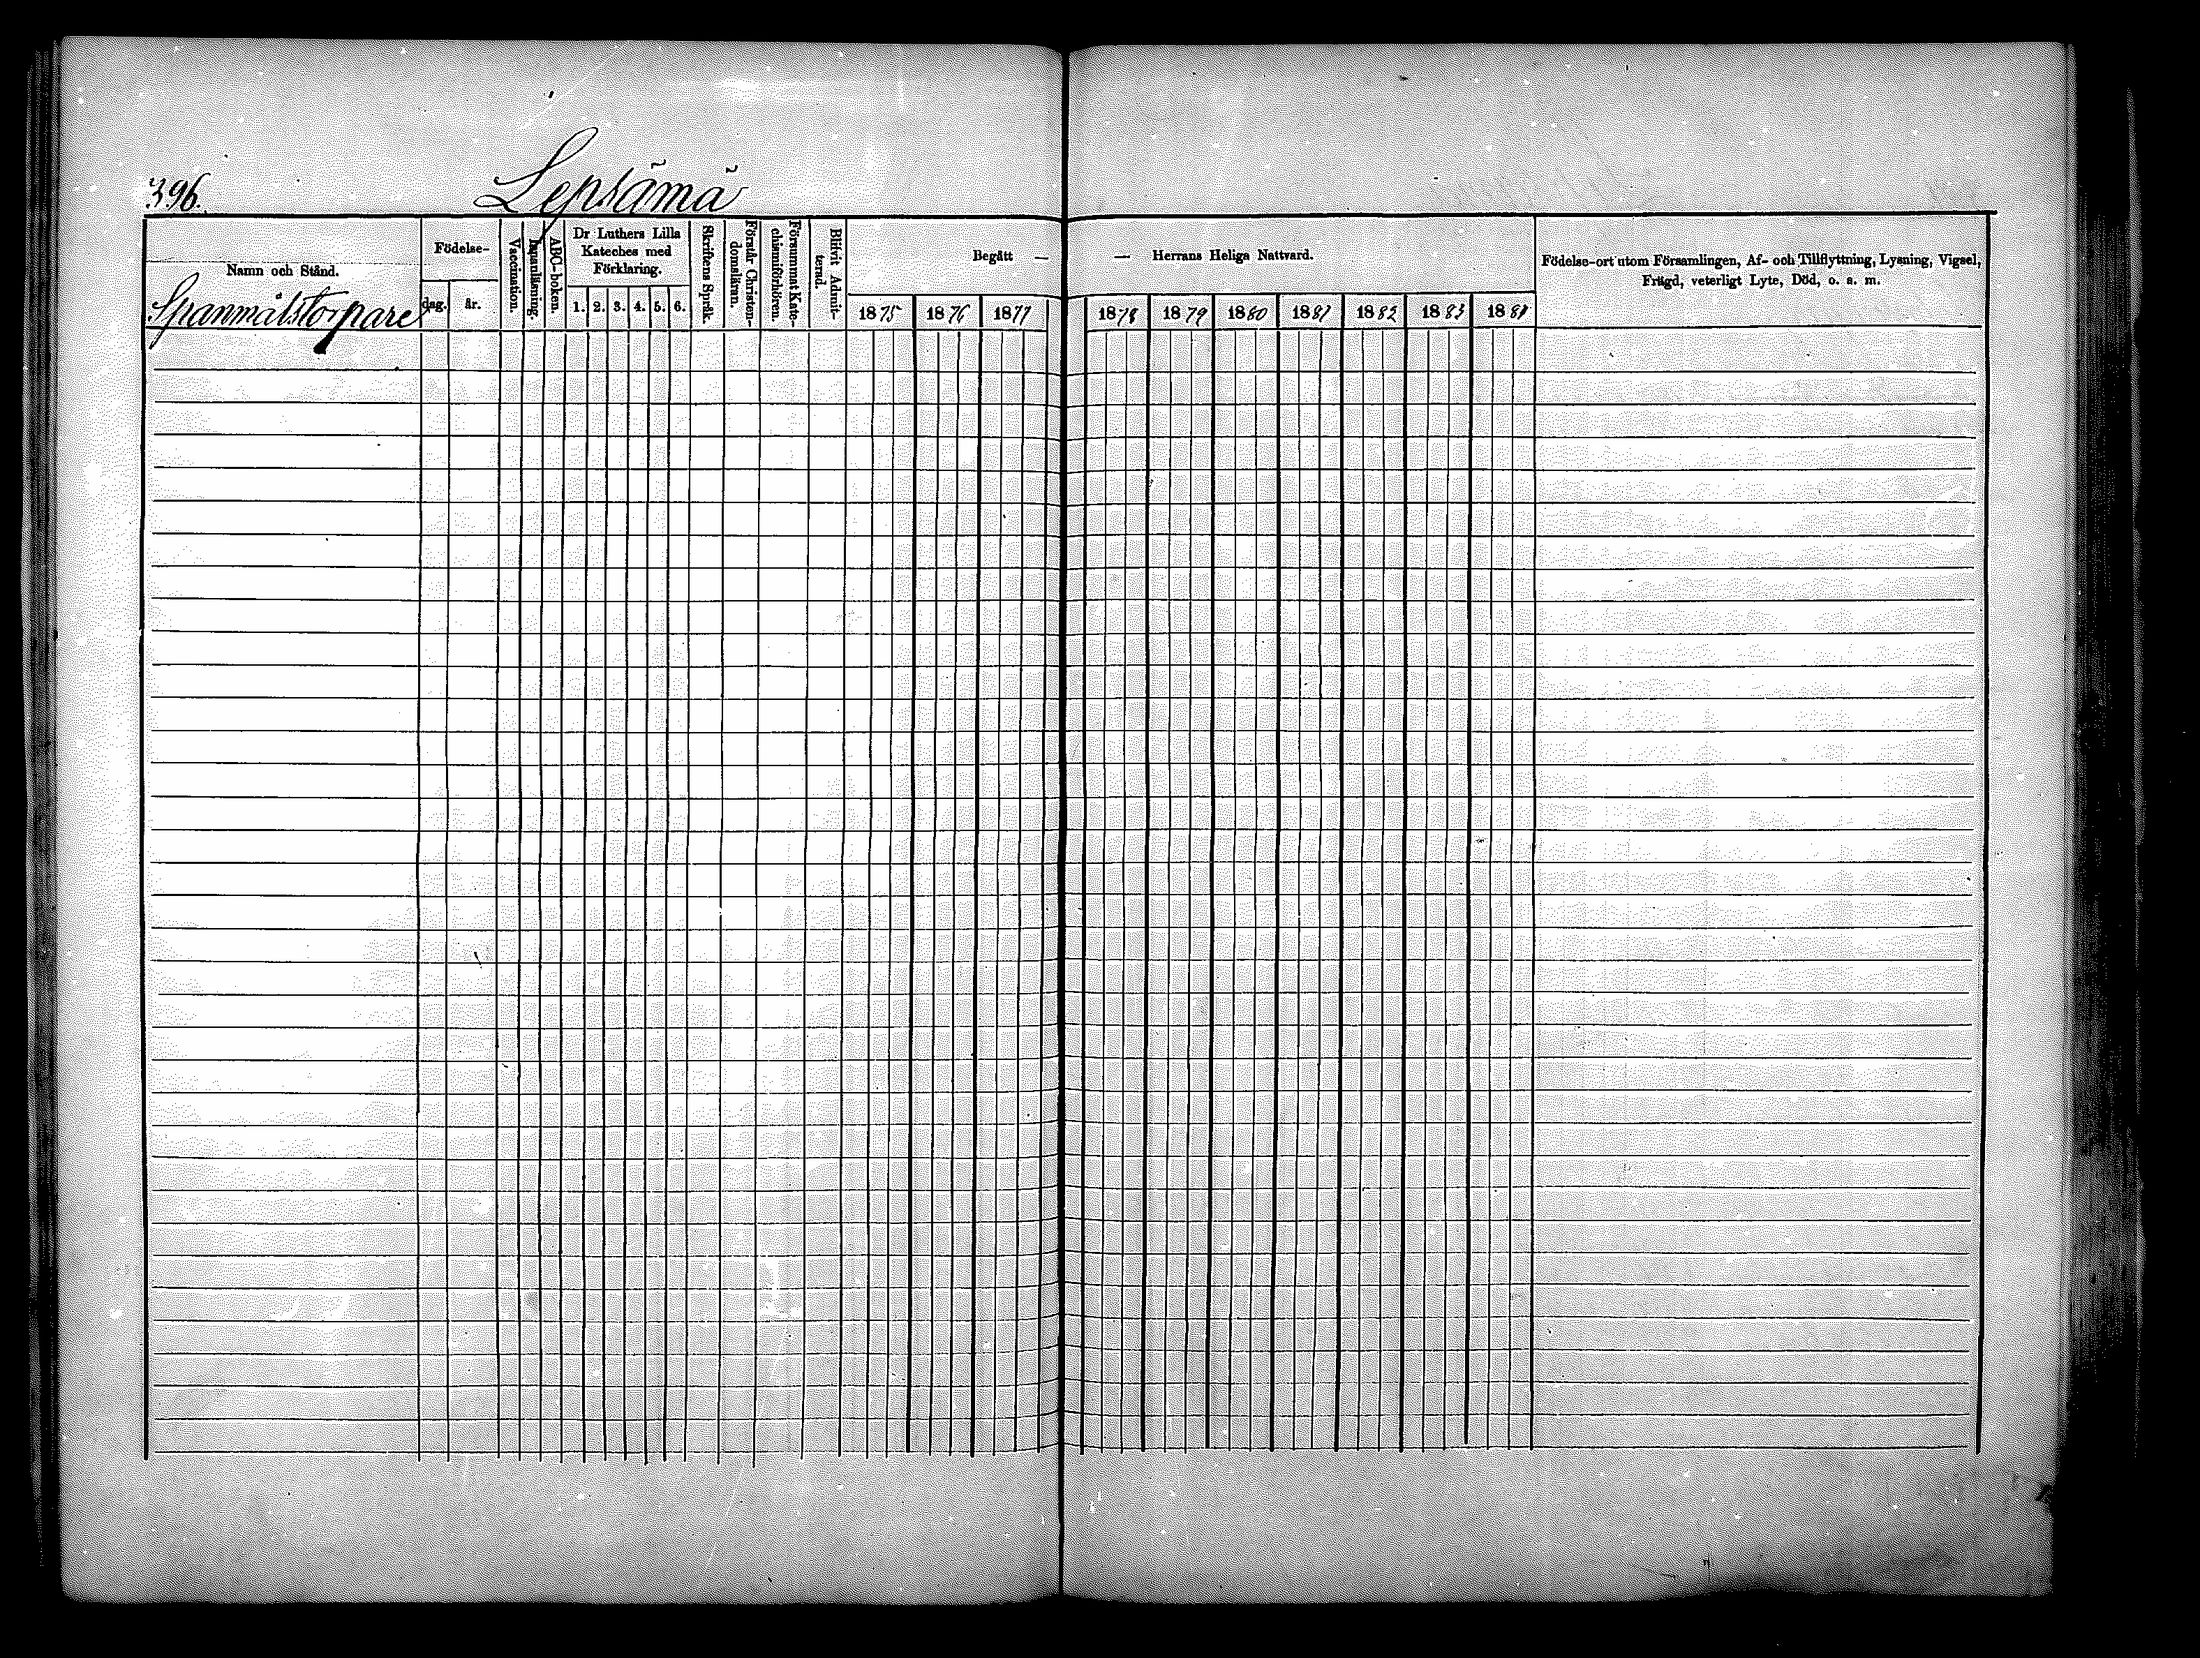 396.
Lepsämä
Namn och Stånd.
Spanmålstorpare
Födelse-
dag.
år.
Vaccination.
Innanläsning.
ABC-boken.
Dr Luthers Lilla
Kateches med
Förklaring.
1. 2. 3. 4. 5. 6.
Skriftens Språk.
Förstår Christen-
domsläran.
Försummat Kate-
chismiförhören.
Blifvit Admit-
terad.
Begått —
1875 1876 1877
— Herrans Heliga Nattvard.
1878 1879 1880 1881 1882 1883 1884
Födelse-ort utom Församlingen, Af- och Tillflyttning, Lysning, Vigsel,
Frägd, veterligt Lyte, Död, o. s. m.